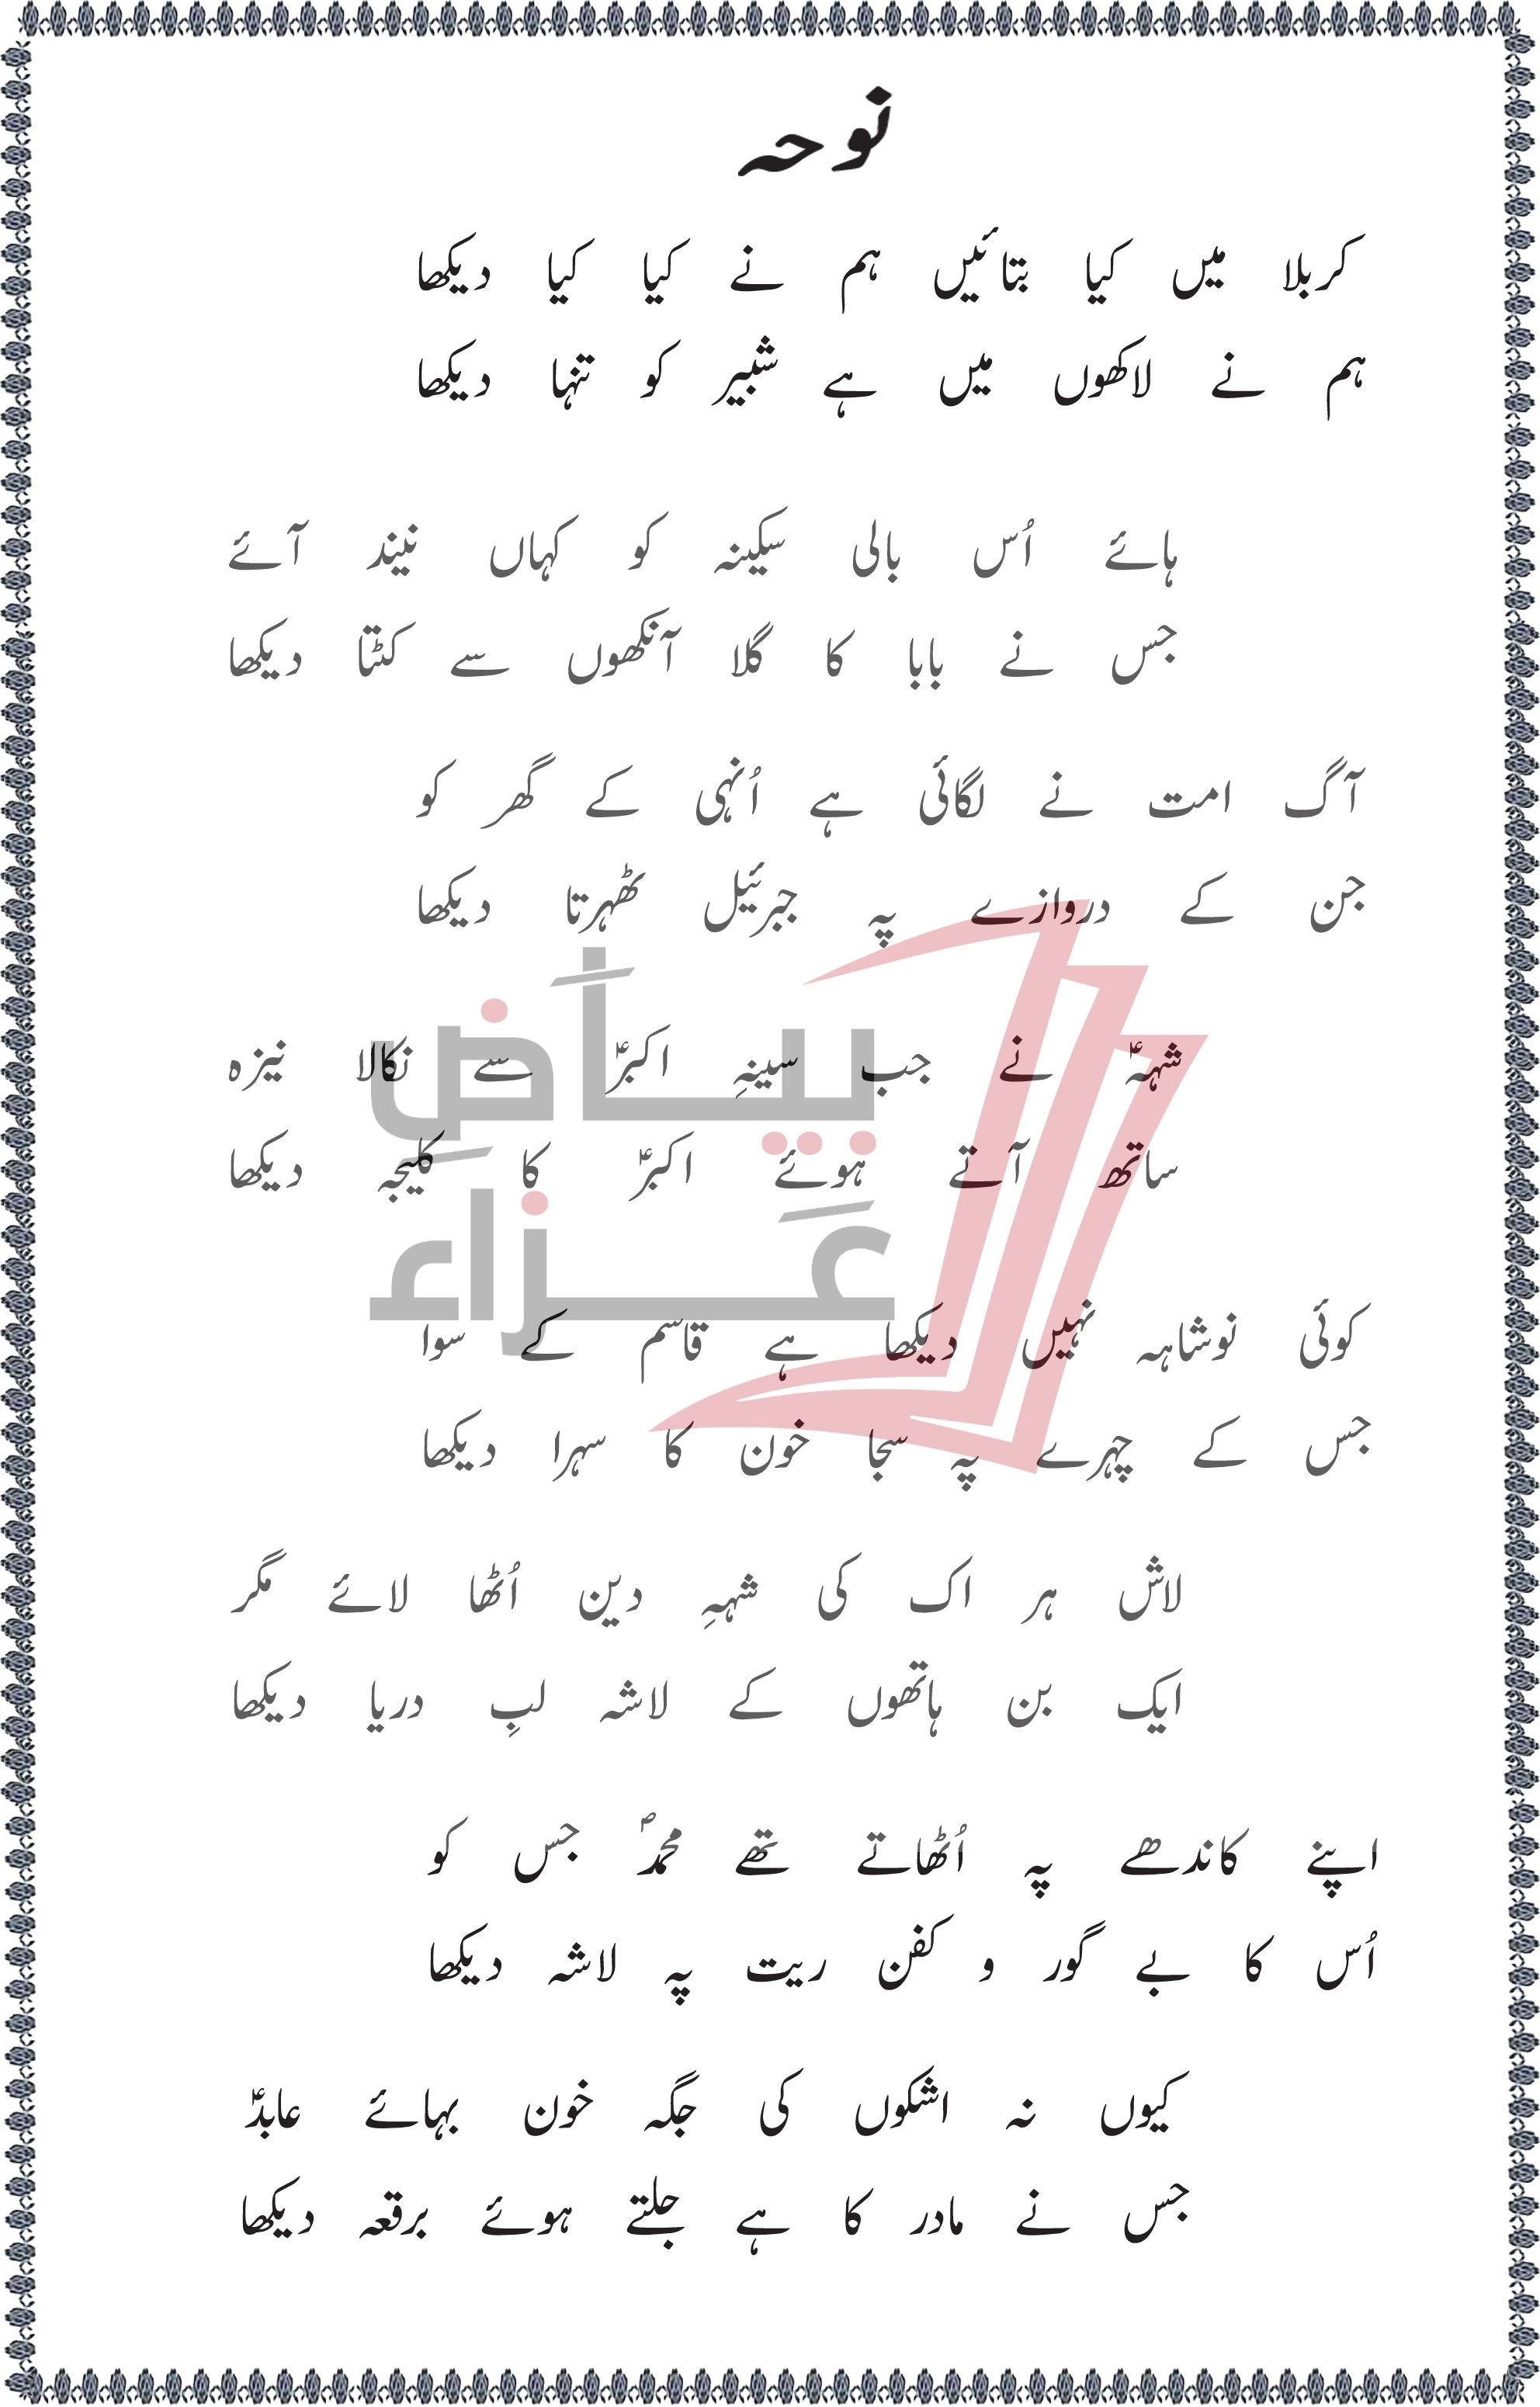 نوحہ
کربلا میں کیا بتائیں ہم نے کیا کیا دیکھا
ہم نے لاکھوں میں ہے شبیر کو تنہا دیکھا
ہائے اُس بالی سکینہ کو کہاں نیند آئے
جس نے بابا کا گلا آنکھوں سے کٹتا دیکھا
آگ امت نے لگائی ہے اُنہی کے گھر کو
جن کے دروازے پہ جبرئیل ٹھہرتا دیکھا
شہہؑ نے جب سینہِ اکبرؑ سے نکالا نیزہ
ساتھ آتے ہوئے اکبرؑ کا کلیجہ دیکھا
بیاَضِ
عَزاء
کوئی نوشاہہ نہیں دیکھا ہے قاسم کے سوا
جس کے چہرے پہ سجا خون کا سہرا دیکھا
لاش ہر اک کی شہہِ دین اُٹھا لائے مگر
ایک بن ہاتھوں کے لاشہ لبِ دریا دیکھا
اپنے کاندھے پہ اُٹھاتے تھے محمدؐ جس کو
اُس کا بے گور و کفن ریت پہ لاشہ دیکھا
کیوں نہ اشکوں کی جگہ خون بہائے عابدؑ
جس نے مادر کا ہے جلتے ہوئے برقعہ دیکھا